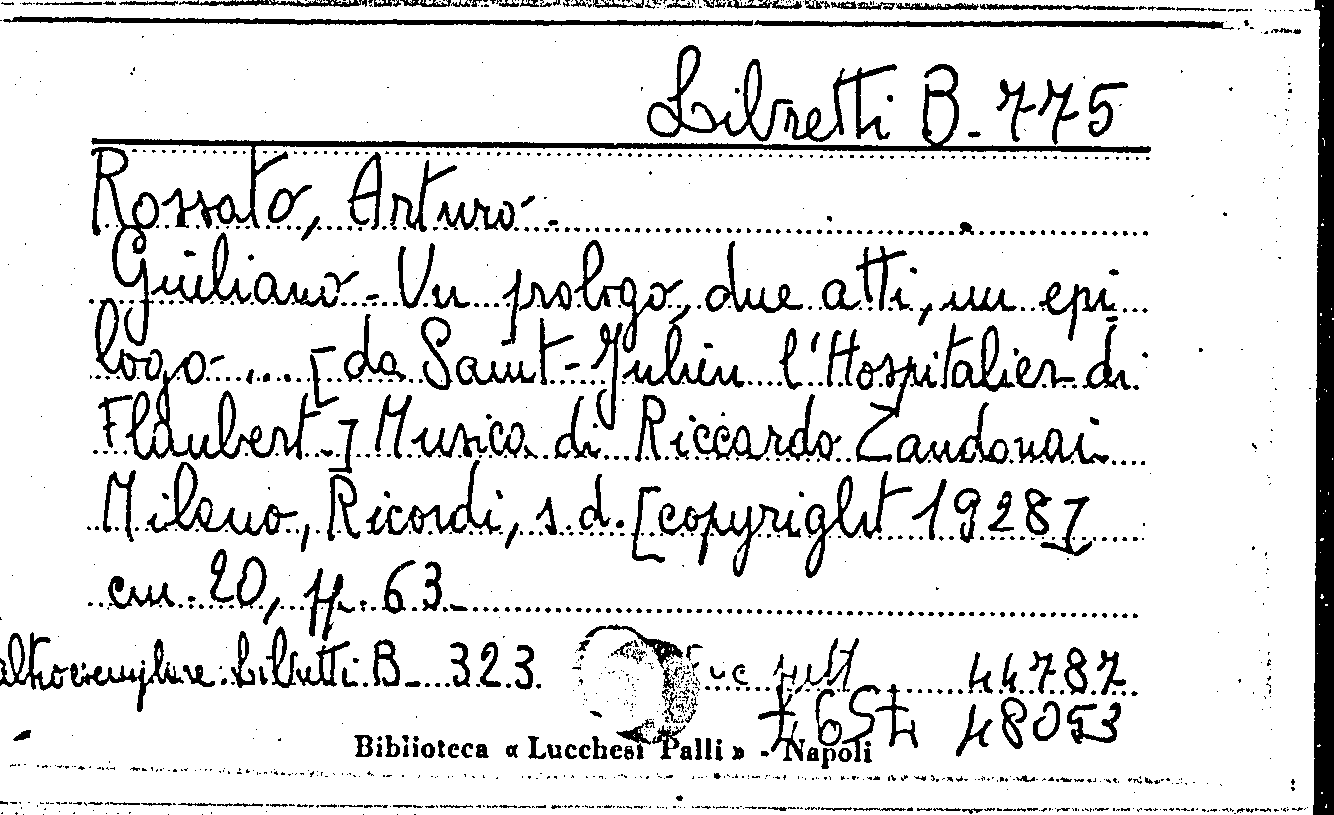 Libretti B. 775
Rossato, Arturo.
Giuliano. Un prologo, due atti, un epi
logo .... [da Saint-Julien l'Hospitalier di
Flaubert.] Musica di Riccardo Zandonai
Milano, Ricordi, s.d. [copyright 1928]
cm. 20, pp. 63.
altro esemplare: Libretti B. 323.
44787
48053
Biblioteca « Lucchesi Palli » - Napoli